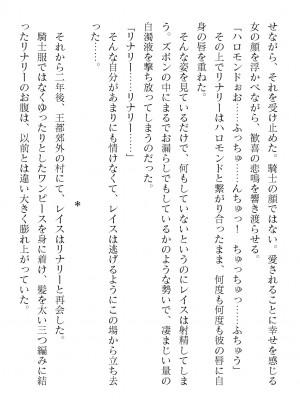 せながら、それを受け止める。騎士の顔ではない。愛されることに幸せを感じる
女の顔を浮かべながら、歓喜の悲鳴を響き渡らせる。
「ハロモンドぉお……ふっちゅ……んちゅうっ！　ちゅっちゅっ……ふちゅう」
その上でリナリーはハロモンドと繋がり合ったまま、何度も何度も彼の唇に自
身の唇を重ねた。
そんな姿を見ているだけで、何もしていないというのにレイスは射精してしま
う。ズボンの中にまるでお漏らしでもしているかのような勢いで、凄まじい量の
白濁液を撃ち放ってしまうのだった。
「リナリー……リナリー」
そんな自分があまりにも情けなくて、レイスは逃げるようにこの場から立ち去
った……。
＊
それから二年後、王都郊外の村にて、レイスはリナリーと再会した。
騎士服ではなくゆったりとしたワンピースを身に着け、髪を太い三つ編みに結
ったリナリーのお腹は、以前とは違い大きく膨れ上がっていた。